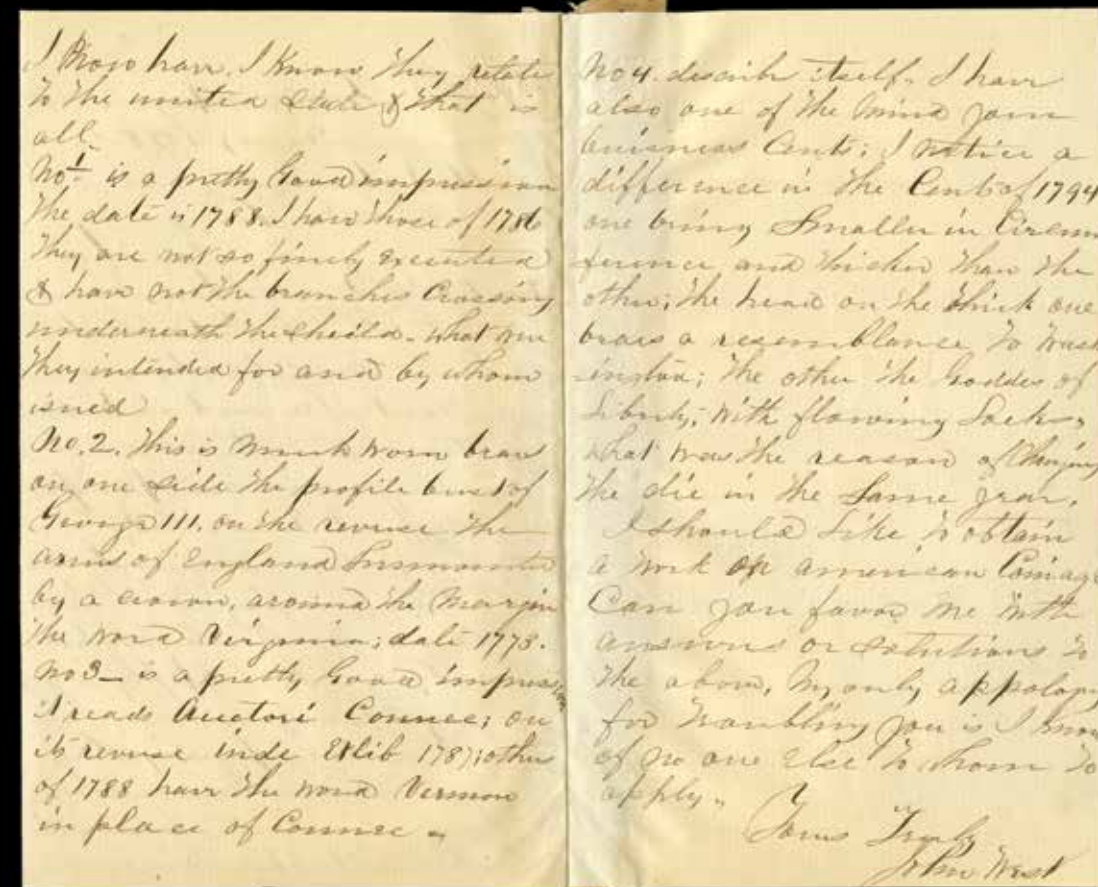 I now have. I know they relate
to the united State & that is
all.
No 1. is a pretty Good impression
the date is 1788. I have those of 1786
they are not so finely executed
& have not the branches Crossing
underneath the sheild. what were
they intended for and by whom
issued
No. 2. This is much worn bears
on one side the profile bust of
George III. on the reverse the
arms of England Surmounted
by a crown, around the Margin
the word Virginia; date 1773.
No 3_ is a pretty Good impression
it reads Auctori Connec; on
its reverse inde Et lib 1787; others
of 1788 have the word Vermon
in place of Connec -
No 4. describe itself. I have
also one of the mind your
buisness Cents; I notice a
difference in the Cent of 1794
one being Smaller in Circum
ference and thicker than the
other; the head on the thick one
bears a resemblance to Wash
ington; the other the Goddes of
Liberty; with flowing Locks,
what was the reason of Changing
the die in the Same year.
I should like to obtain
a work on american Coinage
Can you favor me with
answers or solutions to
the above, My only appology
for troubling you is I know
of no one else to whom to
apply.
Yours Truly
John West